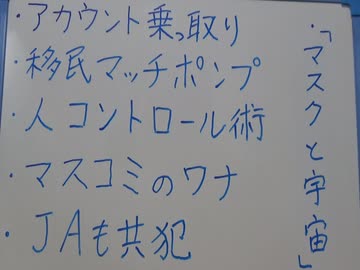 ・アカウント乗っ取り
・移民マッチポンプ
・人コントロール術
・マスコミのワナ
・JAも共犯
・「マスクと宇宙」